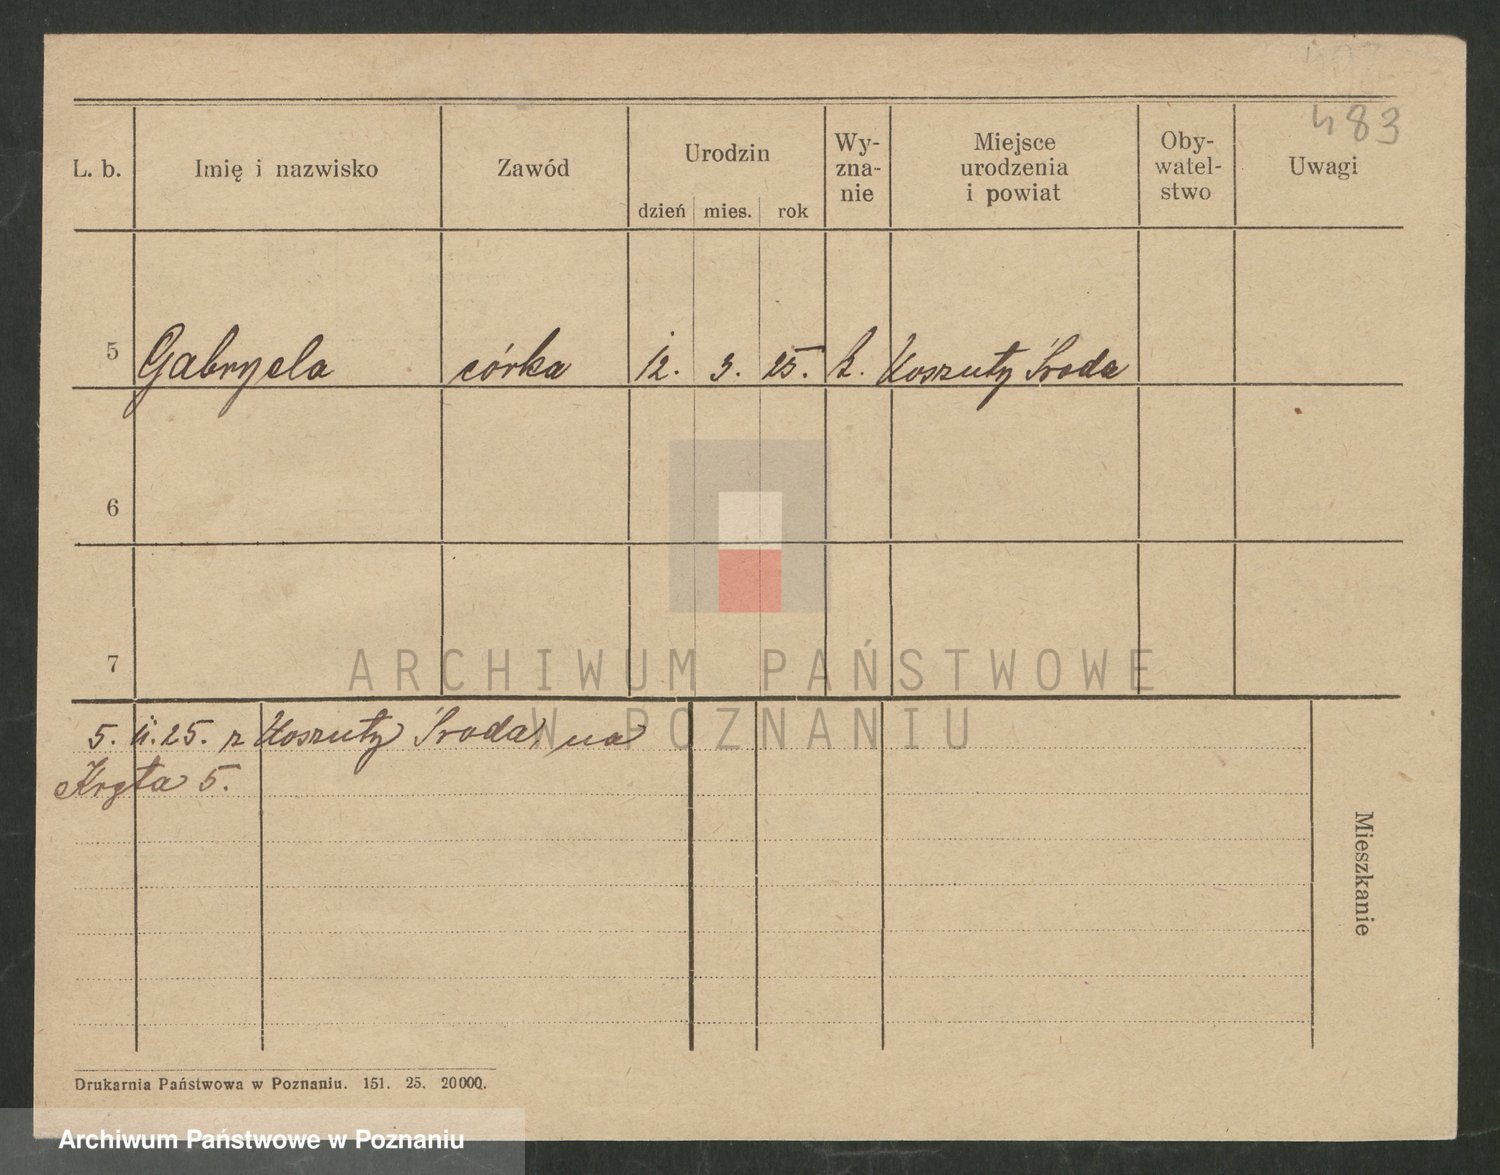 483
L. b. Imię i nazwisko Zawód Urodzin Wy-zna-nie Miejsce urodzenia i powiat Oby-watel-stwo Uwagi
dzień mies. rok
5 Gabryela córka 12. 3. 25. k. Koszuty Środa
6
7
5. 11. 25. z Koszuty Środa, na
Kręta 5.
Mieszkanie
Drukarnia Państwowa w Poznaniu. 151. 25. 20000.
ARCHIWUM PAŃSTWOWE
W POZNANIU
Archiwum Państwowe w Poznaniu